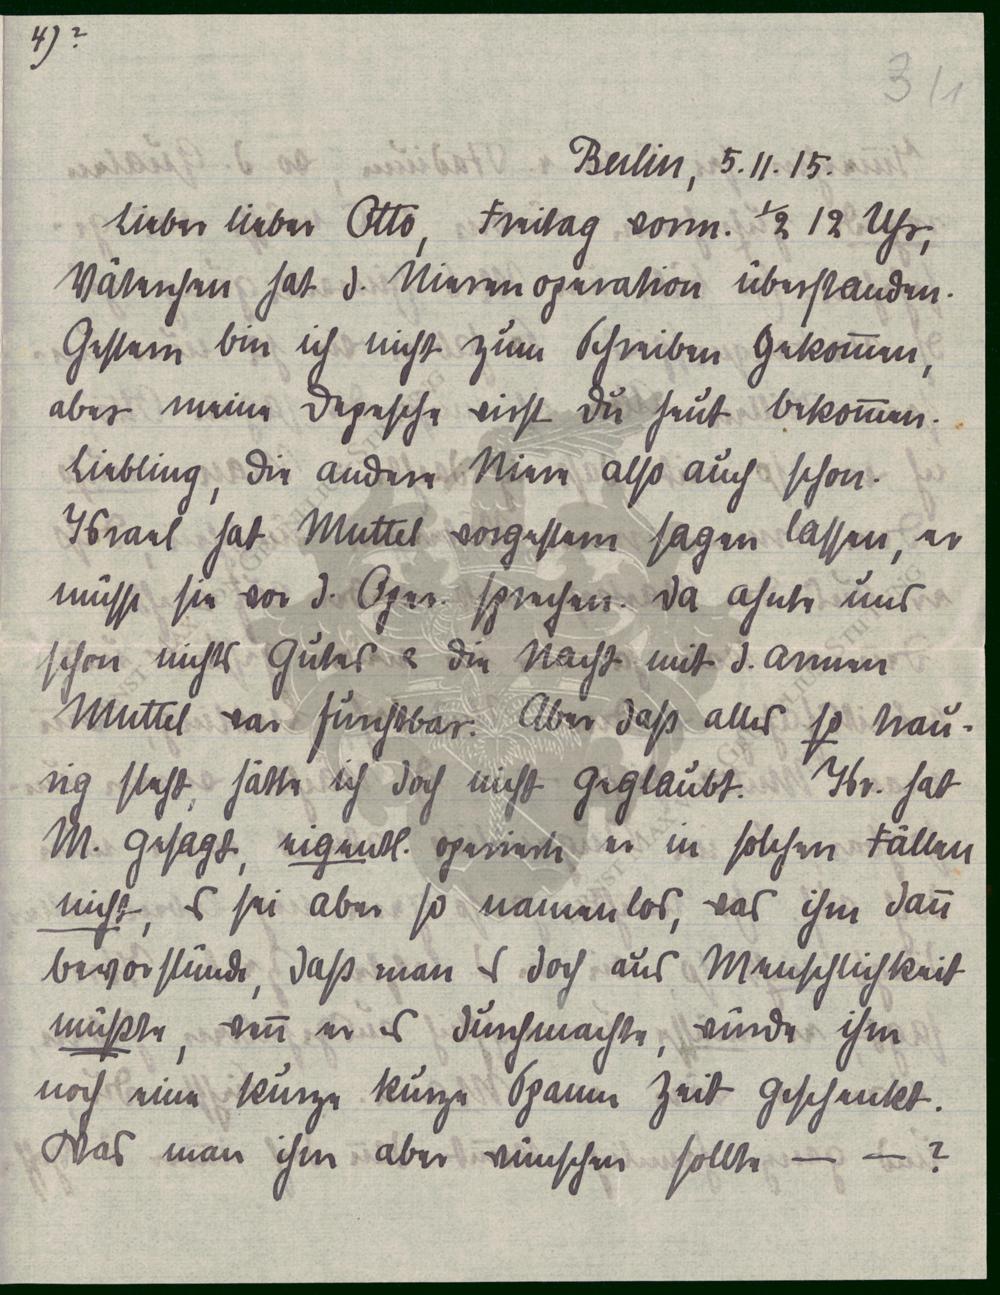 4) ?
3/1
Berlin, 5.11.15.
Lieber lieber Otto, Freitag vorm. ½ 12 Uhr,
Väterchen hat d. Nierenoperation überstanden.
Gestern bin ich nicht zum Schreiben gekom̅en,
aber meine Depesche wirst Du heut bekom̅en.
Liebling, die andere Niere also auch schon.
Israel hat Muttel vorgestern sagen lassen, er
müsse sie vor d. Oper. sprechen. Da ahnte uns
schon nichts Gutes & die Nacht mit d. armen
Muttel war furchtbar. Aber daß alles so trau-
rig steht, hätte ich doch nicht geglaubt. Isr. hat
M. gesagt, eigentl. operiere er in solchen Fällen
nicht, es sei aber so namenlos, was ihm dan̅
bevorstünde, daß man es doch aus Menschlichkeit
müßte, wen̅ er es durchmachte, würde ihm
noch eine kurze kurze Spanne Zeit geschenkt.
Was man ihm aber wünschen sollte — — ?